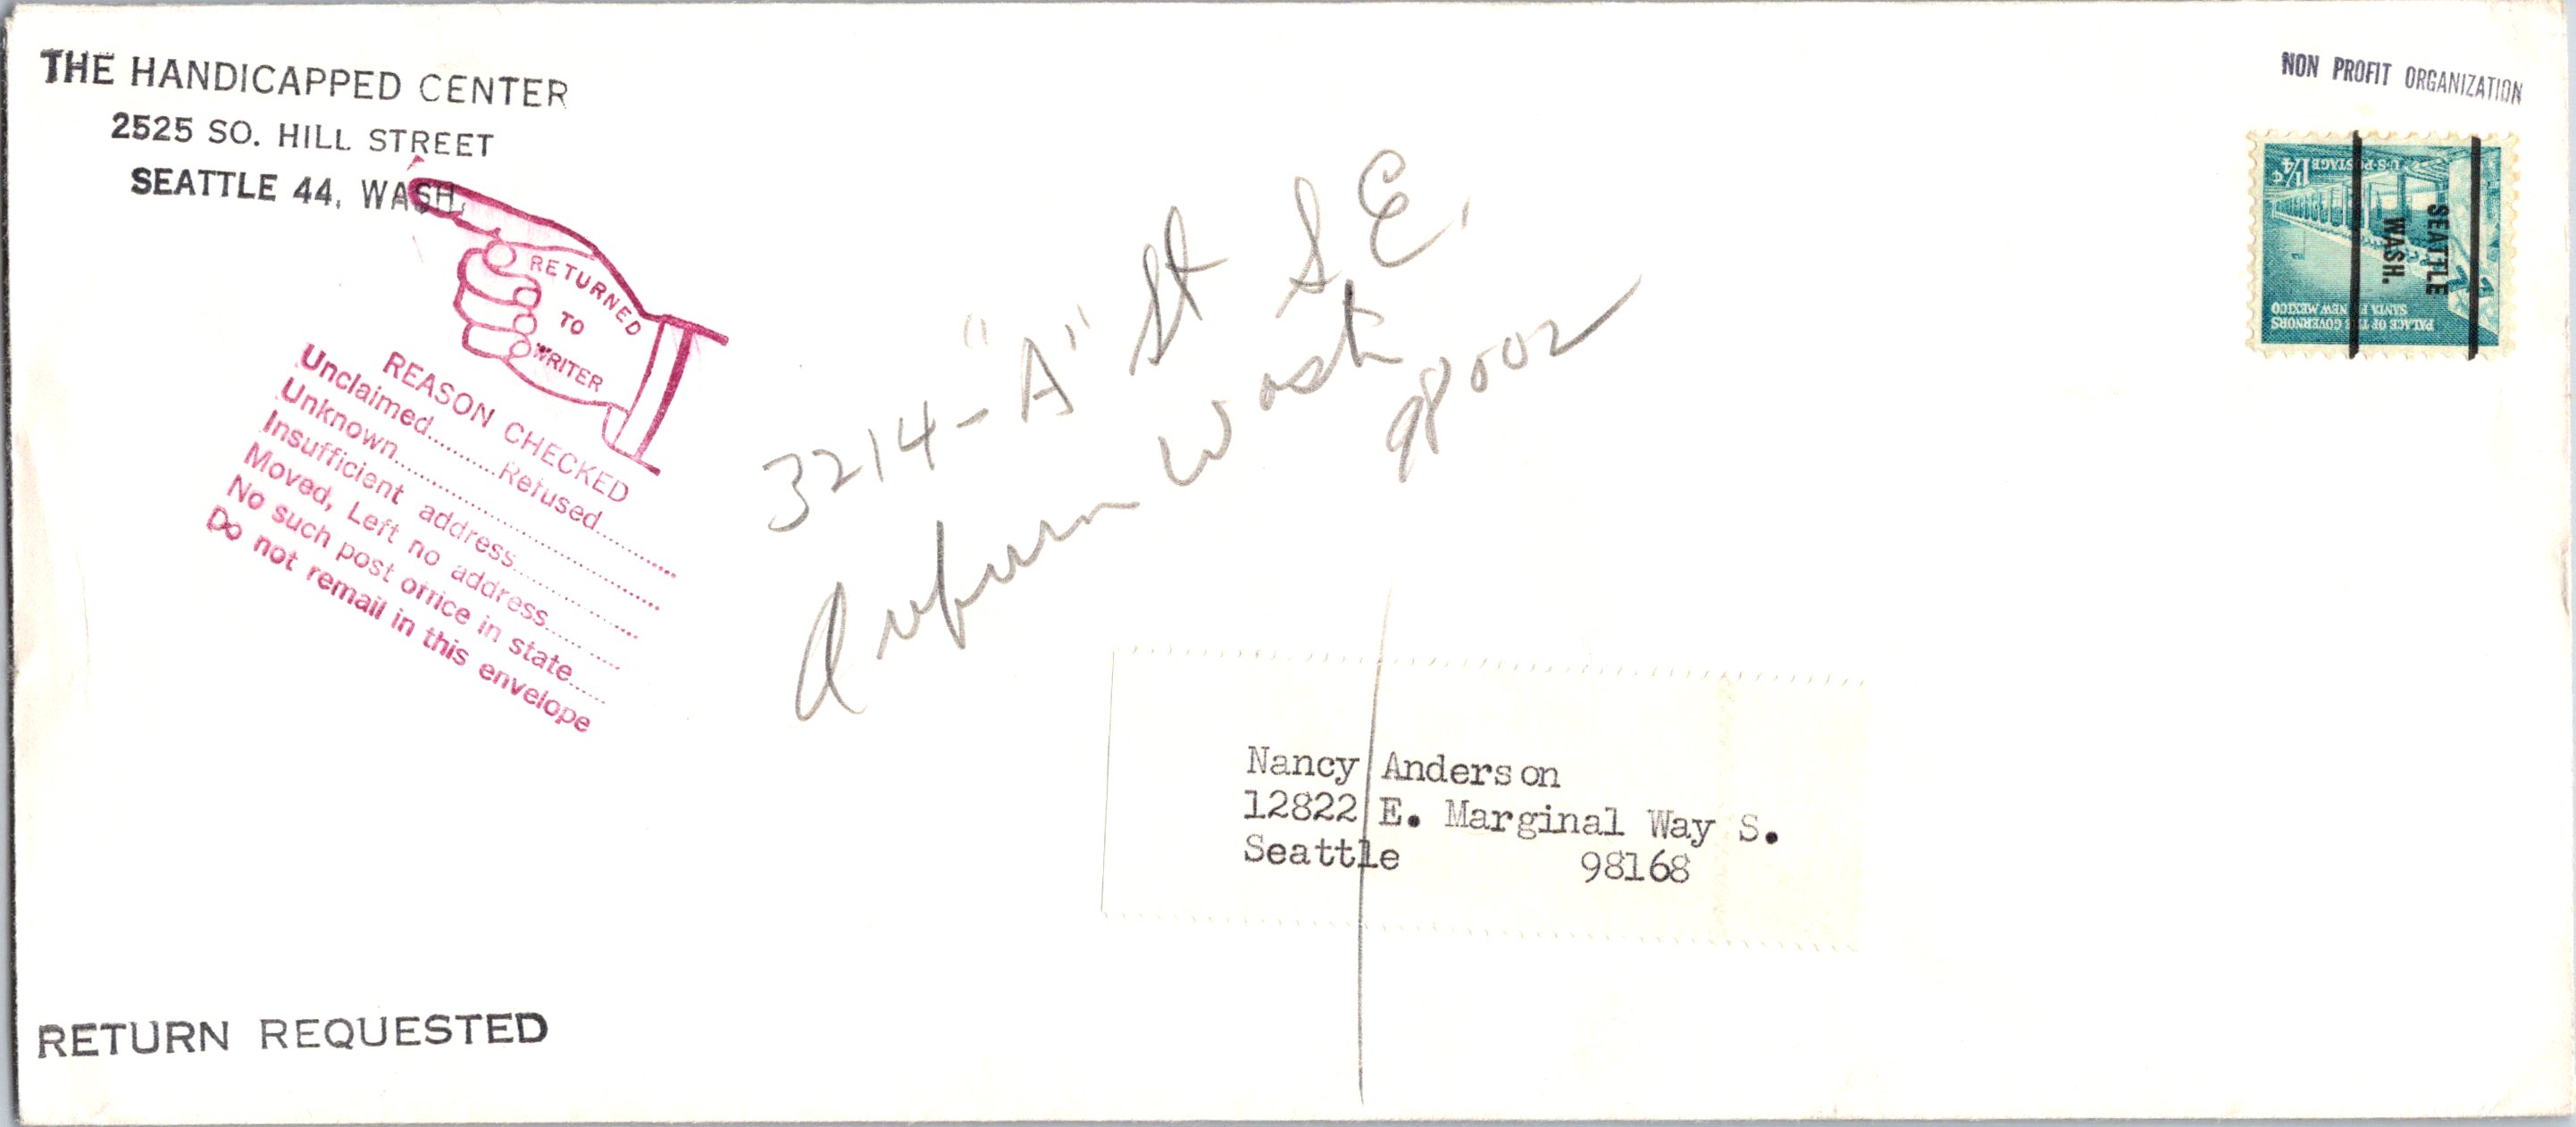 THE HANDICAPPED CENTER
2525 SO. HILL STREET
SEATTLE 44, WASH.
NON PROFIT ORGANIZATION
1¼¢
U·S·POSTAGE
PALACE OF THE GOVERNORS
SANTA FE, NEW MEXICO
SEATTLE
WASH.
RETURNED
TO
WRITER
REASON CHECKED
Unclaimed..........Refused..........
Unknown..............................
Insufficient address...............
Moved, Left no address..........
No such post office in state......
Do not remail in this envelope
3214-"A" St S E.
Auburn Wash
98002
Nancy Anderson
12822 E. Marginal Way S.
Seattle 98168
RETURN REQUESTED